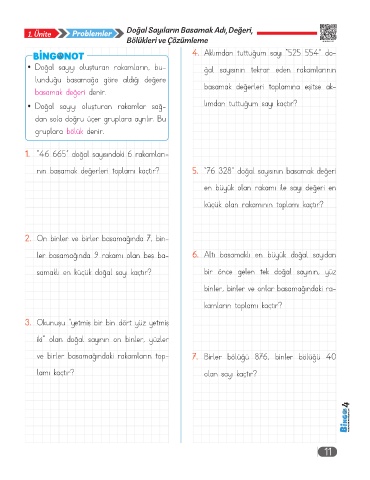 1. Ünite Problemler Doğal Sayıların Basamak Adı, Değeri,
Bölükleri ve Çözümleme
BİNGONOT
• Doğal sayıyı oluşturan rakamların, bu-
lunduğu basamağa göre aldığı değere
basamak değeri denir.
• Doğal sayıyı oluşturan rakamlar sağ-
dan sola doğru üçer gruplara ayrılır. Bu
gruplara bölük denir.
1. "46 665" doğal sayısındaki 6 rakamları-
nın basamak değerleri toplamı kaçtır?
2. On binler ve birler basamağında 7, bin-
ler basamağında 9 rakamı olan beş ba-
samaklı en küçük doğal sayı kaçtır?
3. Okunuşu "yetmiş bir bin dört yüz yetmiş
iki" olan doğal sayının on binler, yüzler
ve birler basamağındaki rakamların top-
lamı kaçtır?
4. Aklımdan tuttuğum sayı "525 554" do-
ğal sayısının tekrar eden rakamlarının
basamak değerleri toplamına eşitse ak-
lımdan tuttuğum sayı kaçtır?
5. "76 328" doğal sayısının basamak değeri
en büyük olan rakamı ile sayı değeri en
küçük olan rakamının toplamı kaçtır?
6. Altı basamaklı en büyük doğal sayıdan
bir önce gelen tek doğal sayının, yüz
binler, binler ve onlar basamağındaki ra-
kamların toplamı kaçtır?
7. Birler bölüğü 876, binler bölüğü 40
olan sayı kaçtır?
BİNGO 4
11